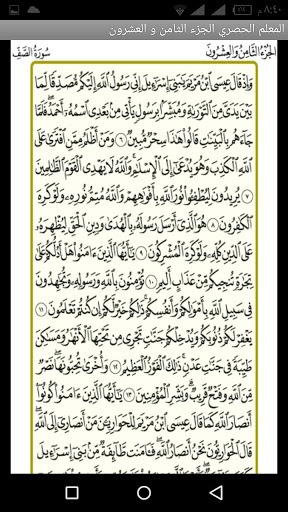 ٨:٤٠
المعلم الحصري الجزء الثامن و العشرون
الجزء الثامن والعشرون
سورة الصف
وَإِذْ قَالَ عِيسَى ٱبْنُ مَرْيَمَ يَٰبَنِىٓ إِسْرَٰٓءِيلَ إِنِّى رَسُولُ ٱللَّهِ إِلَيْكُم مُّصَدِّقًا لِّمَا
بَيْنَ يَدَىَّ مِنَ ٱلتَّوْرَىٰةِ وَمُبَشِّرًۢا بِرَسُولٍ يَأْتِى مِنۢ بَعْدِى ٱسْمُهُۥٓ أَحْمَدُ ۖ فَلَمَّا
جَآءَهُم بِٱلْبَيِّنَٰتِ قَالُوا۟ هَٰذَا سِحْرٌ مُّبِينٌ ٦ وَمَنْ أَظْلَمُ مِمَّنِ ٱفْتَرَىٰ عَلَى
ٱللَّهِ ٱلْكَذِبَ وَهُوَ يُدْعَىٰٓ إِلَى ٱلْإِسْلَٰمِ ۚ وَٱللَّهُ لَا يَهْدِى ٱلْقَوْمَ ٱلظَّٰلِمِينَ
٧ يُرِيدُونَ لِيُطْفِـُٔوا۟ نُورَ ٱللَّهِ بِأَفْوَٰهِهِمْ وَٱللَّهُ مُتِمُّ نُورِهِۦ وَلَوْ كَرِهَ
ٱلْكَٰفِرُونَ ٨ هُوَ ٱلَّذِىٓ أَرْسَلَ رَسُولَهُۥ بِٱلْهُدَىٰ وَدِينِ ٱلْحَقِّ لِيُظْهِرَهُۥ
عَلَى ٱلدِّينِ كُلِّهِۦ وَلَوْ كَرِهَ ٱلْمُشْرِكُونَ ٩ يَٰٓأَيُّهَا ٱلَّذِينَ ءَامَنُوا۟ هَلْ أَدُلُّكُمْ عَلَىٰ
تِجَٰرَةٍ تُنجِيكُم مِّنْ عَذَابٍ أَلِيمٍ ١٠ تُؤْمِنُونَ بِٱللَّهِ وَرَسُولِهِۦ وَتُجَٰهِدُونَ
فِى سَبِيلِ ٱللَّهِ بِأَمْوَٰلِكُمْ وَأَنفُسِكُمْ ۚ ذَٰلِكُمْ خَيْرٌ لَّكُمْ إِن كُنتُمْ تَعْلَمُونَ ١١
يَغْفِرْ لَكُمْ ذُنُوبَكُمْ وَيُدْخِلْكُمْ جَنَّٰتٍ تَجْرِى مِن تَحْتِهَا ٱلْأَنْهَٰرُ وَمَسَٰكِنَ
طَيِّبَةً فِى جَنَّٰتِ عَدْنٍ ۚ ذَٰلِكَ ٱلْفَوْزُ ٱلْعَظِيمُ ١٢ وَأُخْرَىٰ تُحِبُّونَهَا ۖ نَصْرٌ
مِّنَ ٱللَّهِ وَفَتْحٌ قَرِيبٌ ۗ وَبَشِّرِ ٱلْمُؤْمِنِينَ ١٣ يَٰٓأَيُّهَا ٱلَّذِينَ ءَامَنُوا۟ كُونُوٓا۟
أَنصَارَ ٱللَّهِ كَمَا قَالَ عِيسَى ٱبْنُ مَرْيَمَ لِلْحَوَارِيِّۦنَ مَنْ أَنصَارِىٓ إِلَى ٱللَّهِ ۖ
قَالَ ٱلْحَوَارِيُّونَ نَحْنُ أَنصَارُ ٱللَّهِ ۖ فَـَٔامَنَت طَّآئِفَةٌ مِّنۢ بَنِىٓ إِسْرَٰٓءِيلَ